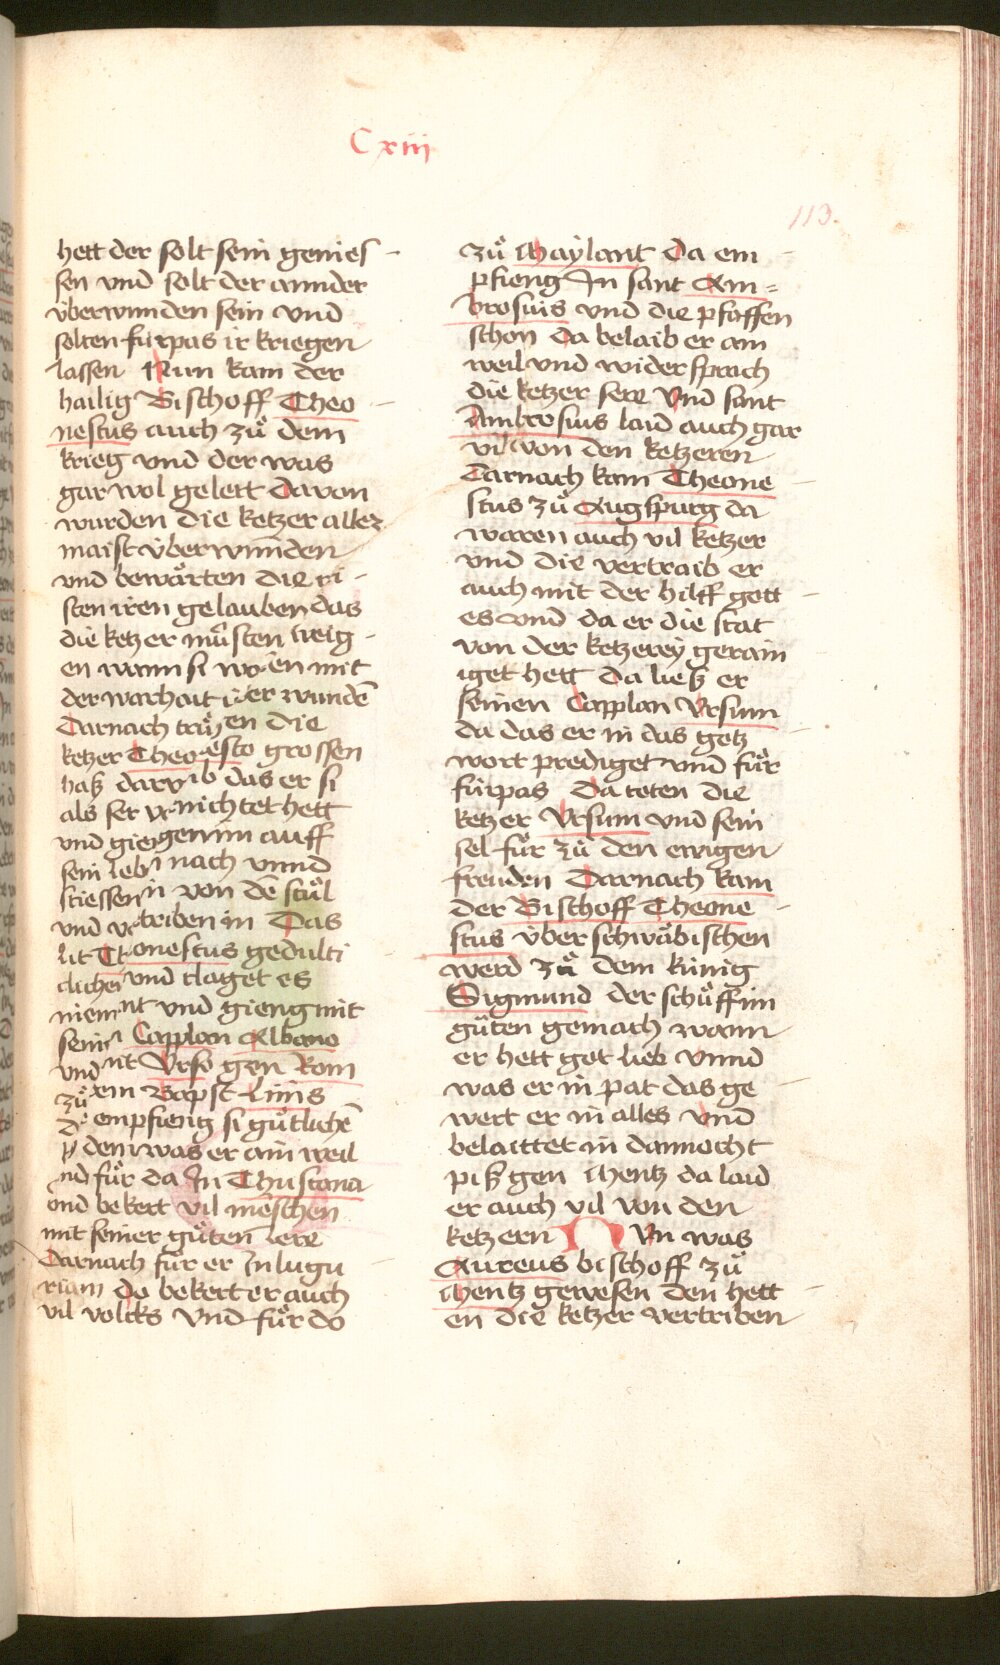 Cxiii
113.
hett der solt sein genies -
sen vnd solt der annder
vͤberwunden sein vnd
solten furpas ir kriegen
lassen Nun kam der
hailig Bischoff Theo
nestus auch zuͦ dem
krieg vnd der was
gar wol gelert Davon
wurden die ketzer allez
maist vͤberwunden
vnd bewaͤrten die cri -
sten iren gelauben das
die ketzer muͤsten sweig -
en wann si
der warhait
Darnach die
ketzer grossen
haß das er si
als ser hett
vnd auff
sein nach vnnd
von dē stuͦl
vnd in Das
lit gedulti
vnd claget es
vnt vnd gieng mit
Capplan Albano
vnd Vrso gen Rom
zuͦ Bapst Linis
empfieng si guͤtlichē
was er ain weil
fuͦr da In Thuscana
vnd bekert vil mēschen
mit seiner guͤten lere
Darnach fuͦr er In lugu
riam do bekert er auch
vil volcks Vnd fuͦr do
zuͦ Maylant Da em -
pfieng In sant Am=
brosius vnd die pfaffen
schon Da belaib er ain
weil vnd widersprach
die ketzer sere Vnd sant
Ambrosius laid auch gar
vil von den ketzeren
Darnach kam Theone -
stus zuͦ Augspurg da
waren auch vil ketzer
vnd die vertraib er
auch mit der hilff gott -
es vnd da er die stat
von der ketzerey gerain
iget hett Da ließ er
seinen Capplan Vrsum
da das er in das gotz
wort prediget vnd fuͦr
fuͤrpas Da toten die
ketzer Vrsum vnd sein
sel fuͦr zuͦ den ewigen
freuden Darnach kam
der Bischoff Theone -
stus vͤber schwaͤbischen
werd zuͦ dem kuͤnig
Sigmund der schuͦff im
guͤten gemach wann
er hett got lieb Vnnd
was er in pat das ge -
wert er in alles vnd
belaittet in dannocht
piß gen Mentz da laid
er auch vil von den
ketzern NVn was
Aureus bischoff zuͦ
Mentz gewesen Den hett -
en die ketzer vertriben